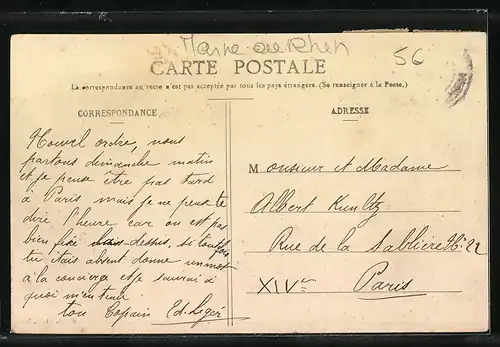 Marne au Rhin
56
CARTE POSTALE
La correspondance au recto n'est pas acceptée par tous les pays étrangers. (Se renseigner à la Poste.)
CORRESPONDANCE
ADRESSE
Nouvel ordre, nous
partons dimanche matin
et je pense être pas tard
à Paris mais je ne peux te
dire l'heure car on est pas
bien fixé dessus, si toutefois
tu étais absent donne un mot
à la concierge et je saurai à
quoi m'en tenir
ton Copain Ed. Leger
Monsieur et Madame
Albert Kuntz
Rue de la Sablière No 22
XIVe
Paris